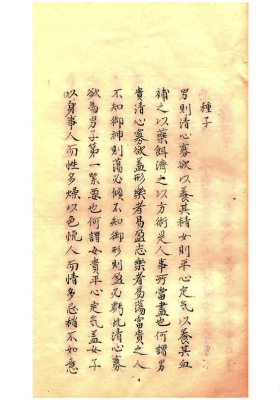 種子
男則清心寡欲以養其精女則平心定气以養其血
補之以藥餌濟之以方術是人事所當盡也何謂男
貴清心寡欲盖形樂者易盈志樂者易蕩富貴之人
不知御神則蕩必傾不知御形則盈必虧此清心寡
欲為男子第一緊要也何謂女貴平心定气盖女子
以身事人而性多燥以色悦人而情多忌稍不如意